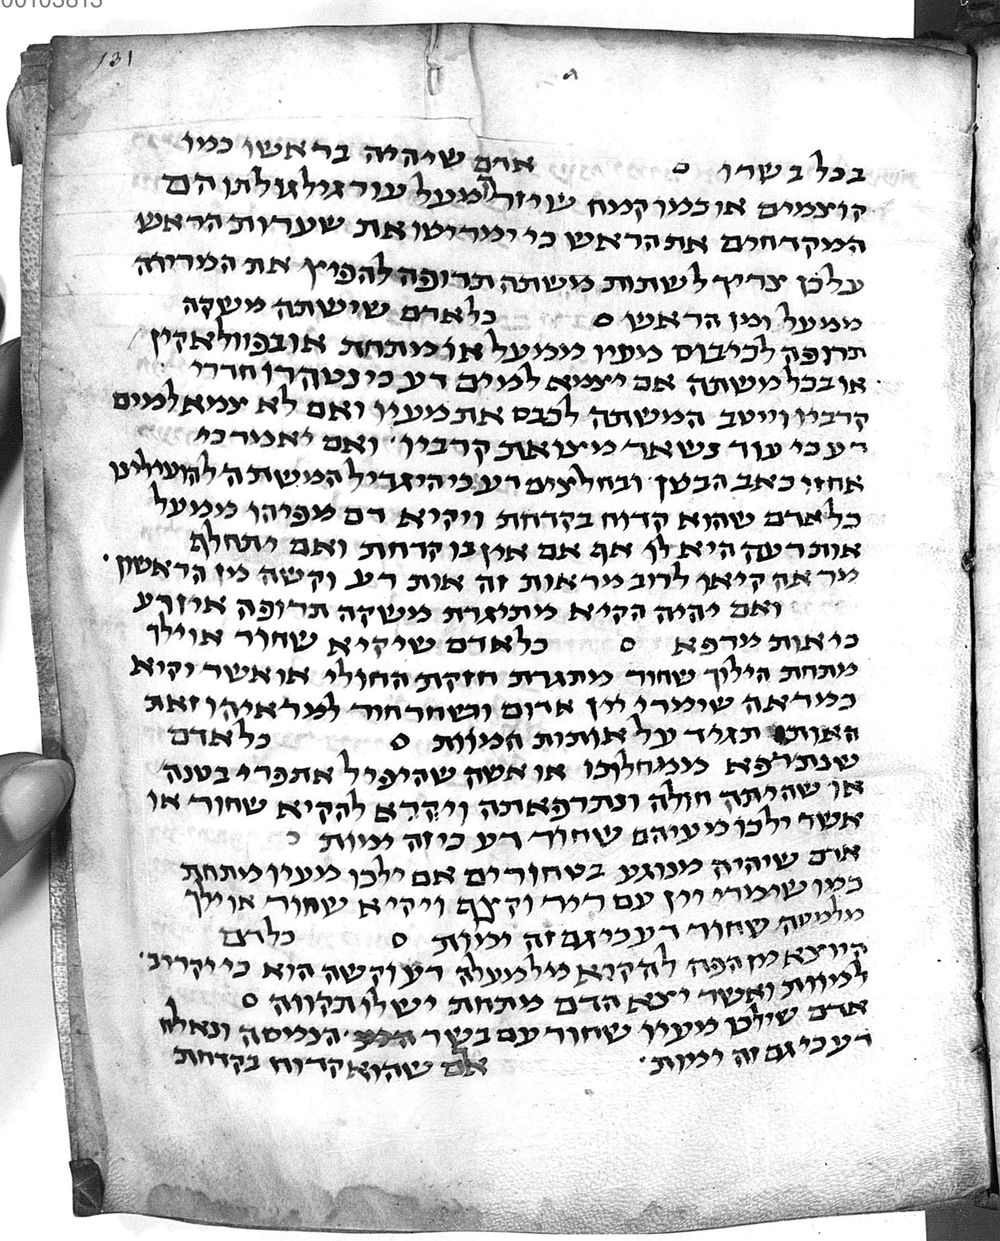 00103813
131
בכל בשרו o אדם שיהיה בראשו כמו
קוצמים או כמו קמח שיזל מעל עור גילגולתו הם
המקדחים את הראש כי ימריטו את שערות הראש
על כן צריך לשתות משתה תרופה להפיץ את המרירה
ממעל ומן הראש o כל אדם שישתה משקה
תרופה לכיבוס מעיו ממעל או מתחת או
או בכל משתה אם יצמא למים דע כי נטהרו חדרי
קרביו וייטב המשתה לכבס את מעיו ואם לא צמא למים
דע כי עוד נשאר מיצואת קרביו ואם יאמר כי
אחזו כאב הבטן ובחלצים דע כי היגדיל המשתה להועילינו
כל אדם שהוא קדוח בקדחת ויקיא דם מפיהו ממעל
אות רעה היא לך אף אם אין בו קדחת ואם יתחלף
מראה קיאו לרוב מראות זה אות רע וקשה מן הראשון
ואם יהיה הקיא מתיגרת משקה תרופה אין רע
כי אות מרפא o כל אדם שיקיא שחור או ילך
מתחת הילוך שחור מתגרת חזקת החולי או אשר יקיא
כמראה שימרי יין אדום ונשחרחור למראיהו זאת
האות תגיד על אותות המוות o כל אדם
שנתרפא ממחלתו או אשה שהיפיל את פרי בטנה
או שהיתה חולה ונתרפאתה ויקרא להקיא שחור או
אשר ילכו מעיהם שחור דע כי זה ימות
אדם שיהיה מנוגע בטחורים אם ילכו מעיו מתחת
כמו שימרי יין עם ריר וקצף ויקיא שחור או ילך
מלמטה שחור דע כי גם זה ימות o כל דם
היוצא מן הפה להקיא מלמעלה רע וקשה הוא כי יקריב
למוות ואשר יצא הדם מתחת יש לו תקווה o
אדם שילכו מעיו שחור עם בשר הנמסה ונאלח
דע כי גם זה ימות אדם שהוא קדוח בקדחת